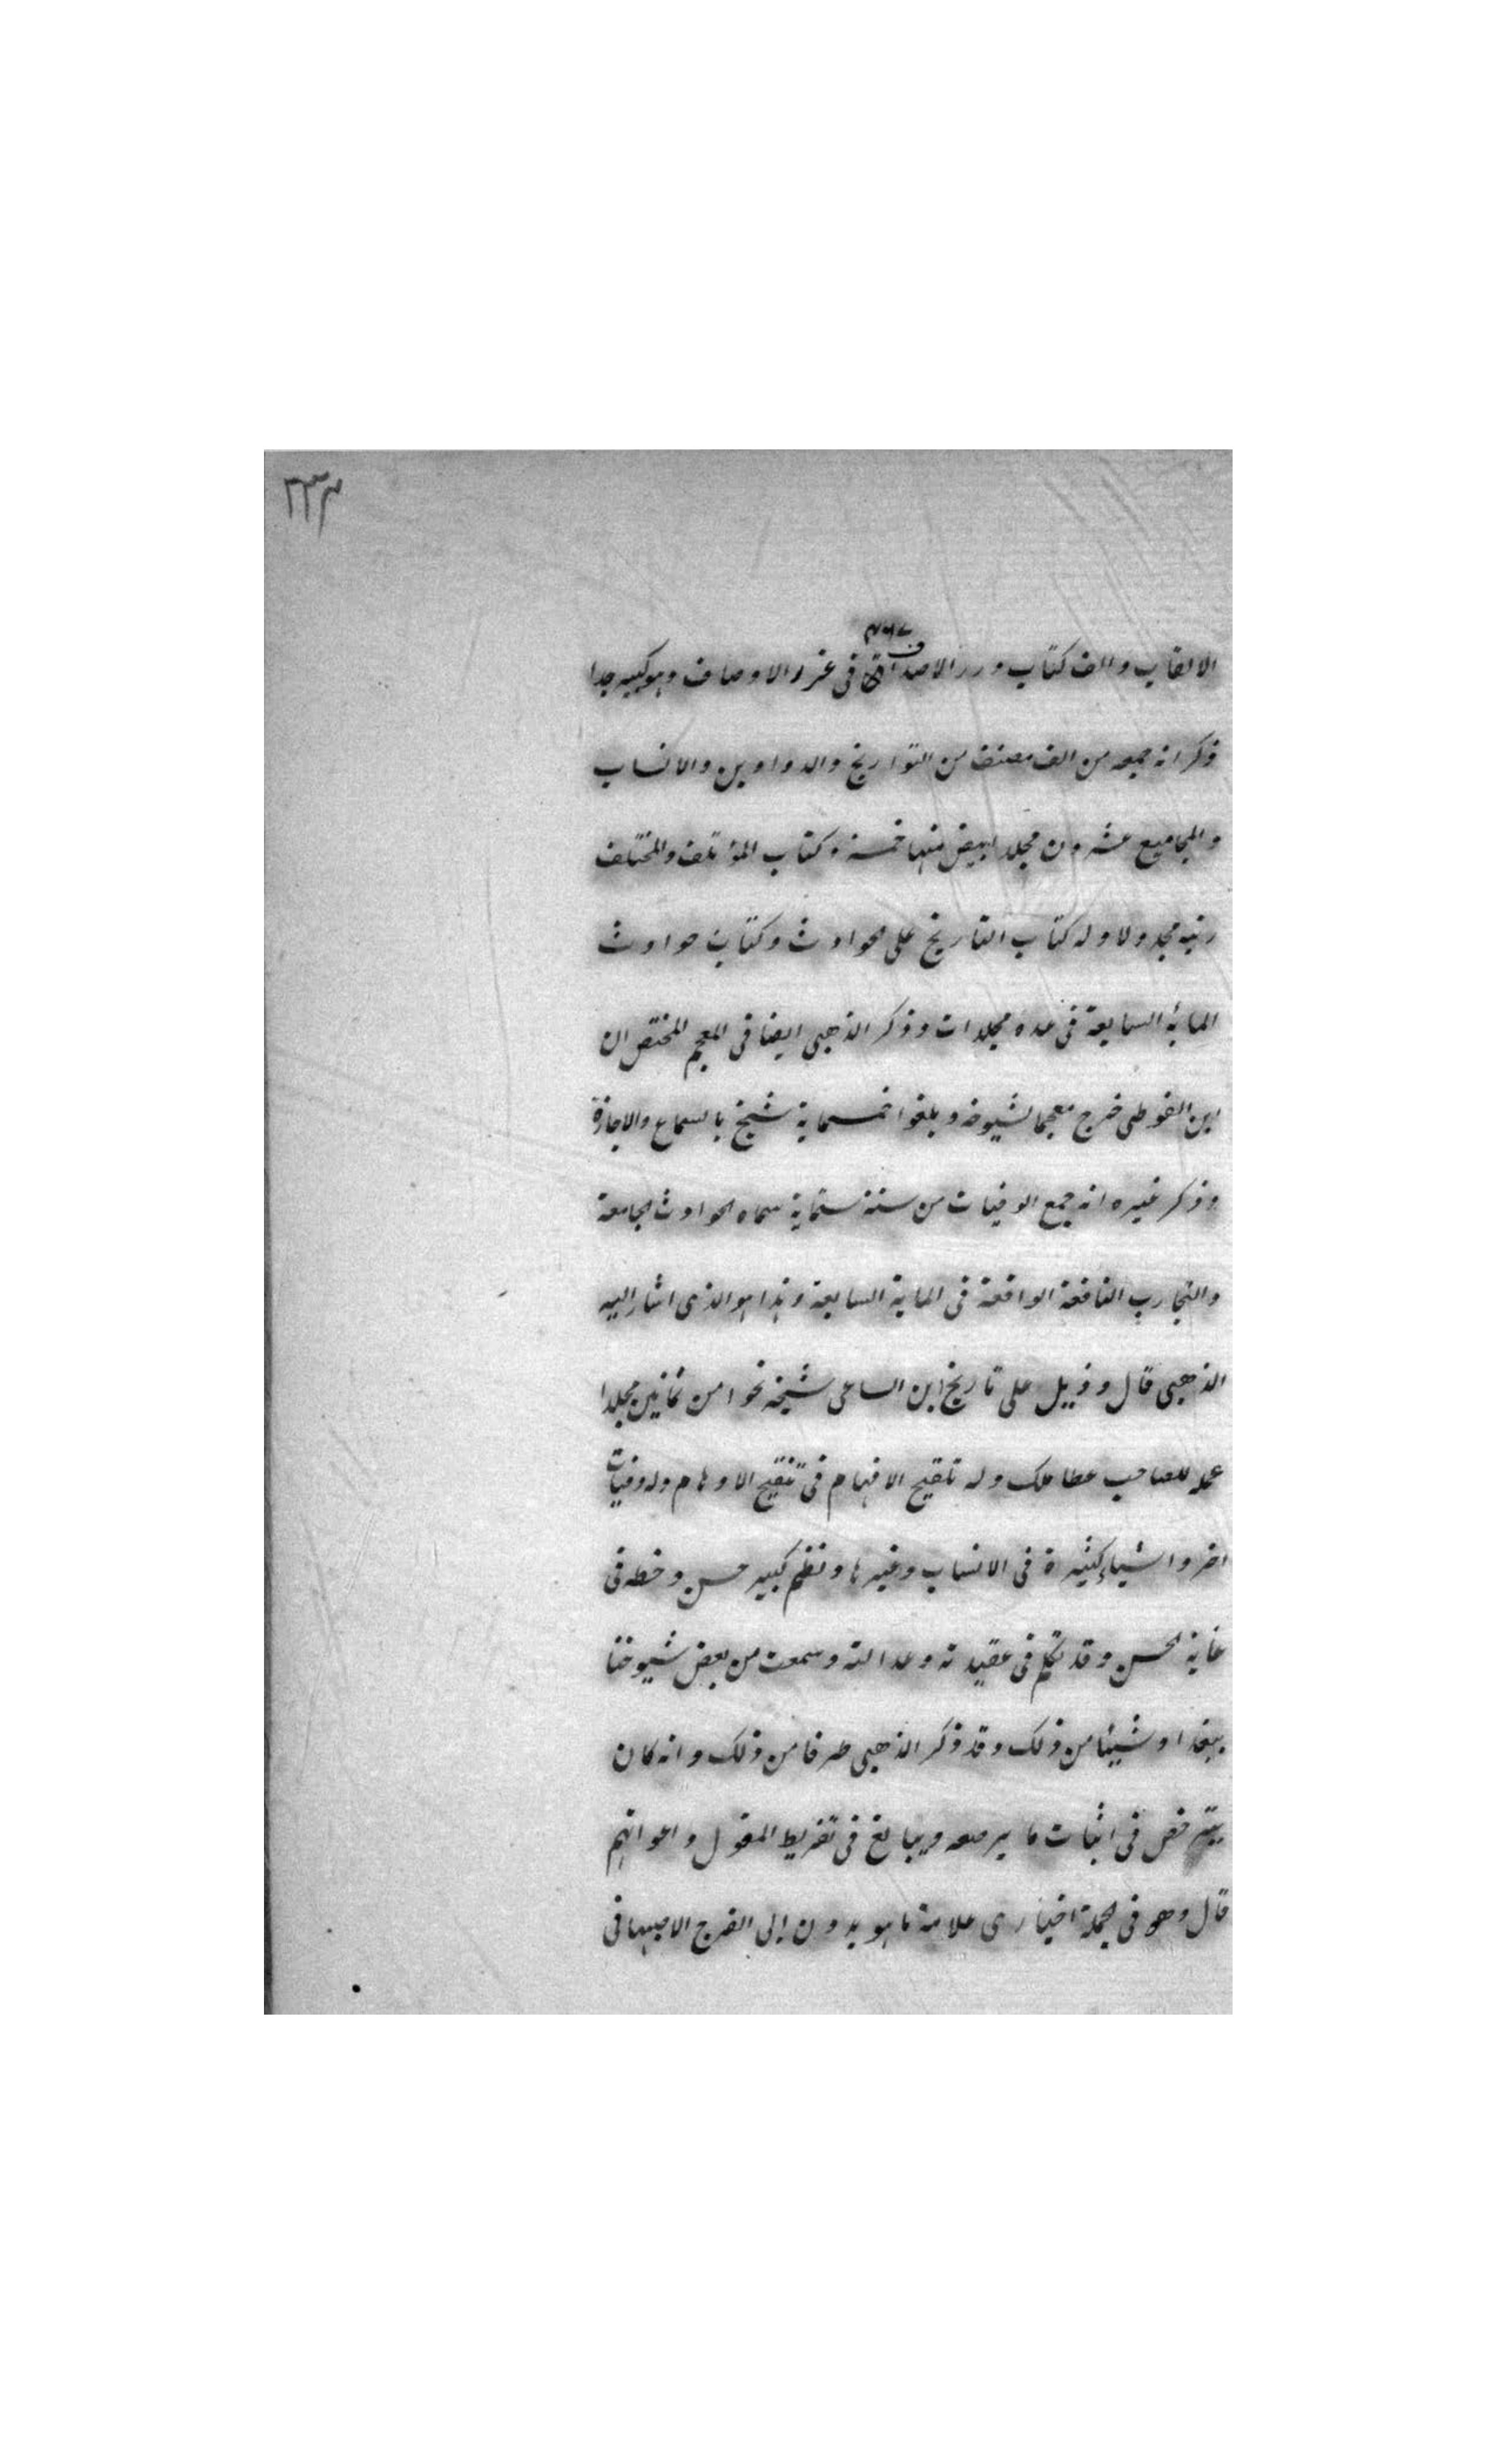 ٢٣٣
الالقاب والف كتاب درر الاصداف فى غرر الاوصاف وهو كبير جدا
ذكر انه جمعه من الف مصنف من التواريخ والدواوين والانساب
والمجاميع عشرون مجلد ابيض منها خمسة وكتاب المؤتلف والمختلف
رتبه مجدولا وله كتاب التاريخ على الحوادث وكتاب حوادث
المائة السابعة فى عدة مجلدات وذكر الذهبى ايضا فى المعجم المختص ان
ابن الفوطى خرج معجما لشيوخه وبلغوا خمسماية شيخ بالسماع والاجازة
وذكر غيره انه جمع الوفيات من سنة ستماية سماه الحوادث الجامعة
والتجارب النافعة الواقعة فى الماية السابعة وهذا هو الذى اشار اليه
الذهبى قال وذيل على تاريخ ابن الساعى شيخه نحوا من ثمانين مجلدا
عمله للصاحب عطا ملك وله تلقيح الافهام فى تنقيح الاوهام وله وفيات
اخر واشياء كثيرة فى الانساب وغيرها ونظم كبير حسن وخطه فى
غاية الحسن وقد تكلم فى عقيدته وعدالته وسمعت من بعض شيوخنا
ببغداد شيئا من ذلك وقد ذكر الذهبى طرفا من ذلك وانه كان
يترخص فى اثبات ما يرصعه ويبالغ فى تقريظ المغول واعوانهم
قال وهو فى الجملة اخبارى علامة ما هو بدون ابى الفرج الاصبهانى